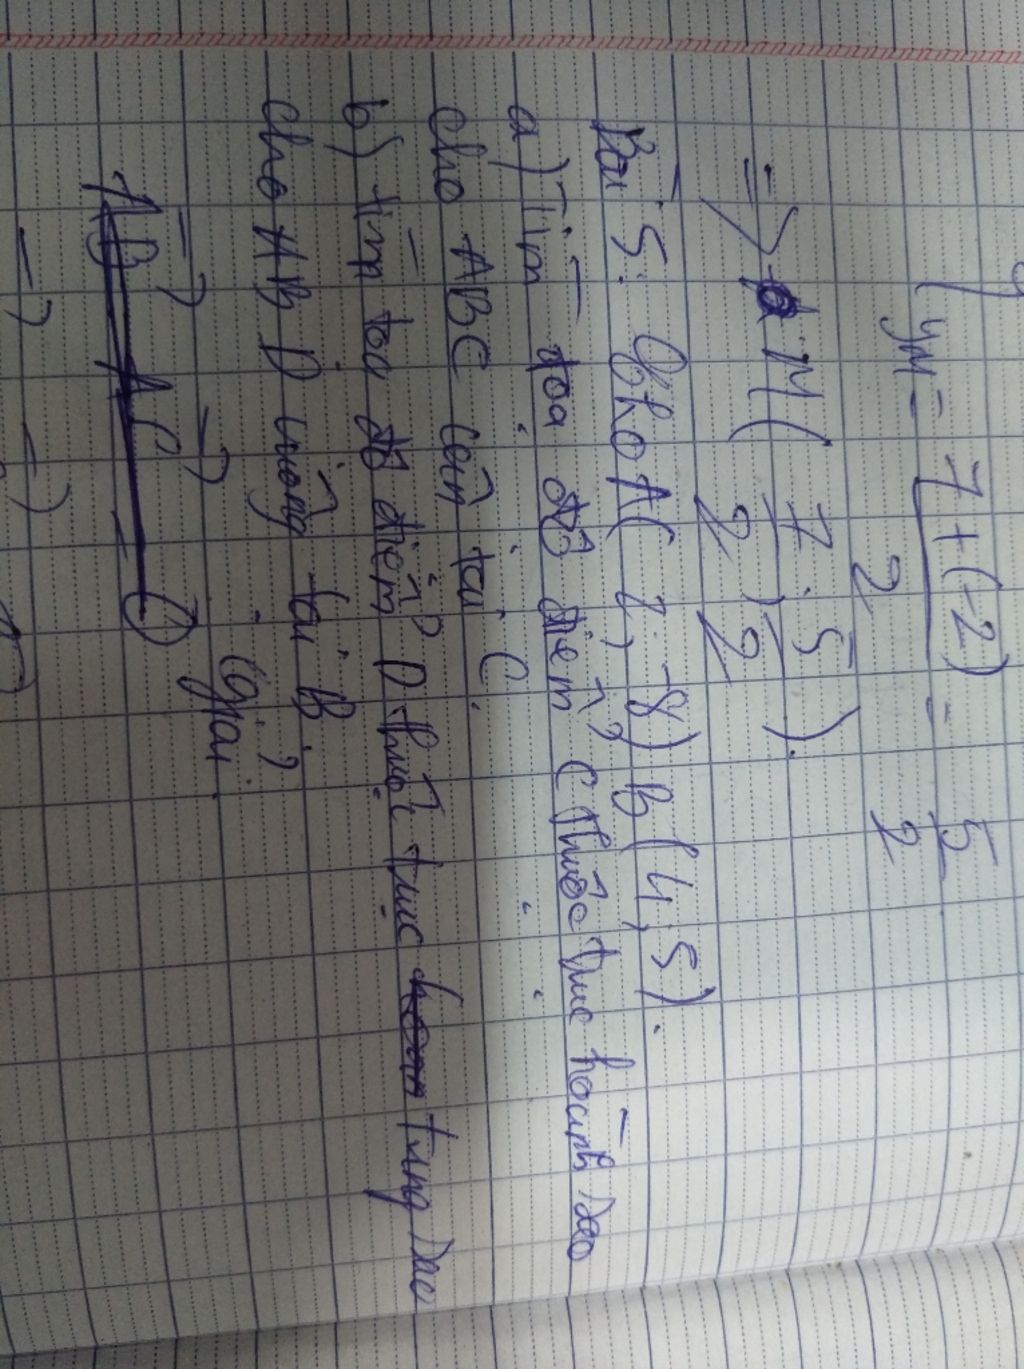 yM = 7 + (-2) / 2 = 5 / 2
=> M ( 7/2 ; 5/2 ).
Bài 5: Cho A( 2; -8) B(4; 5).
a) Tìm toạ độ điểm C thuộc trục hoành sao
cho ABC cân tại C.
b) tìm toạ độ điểm D thuộc trục tung sao
cho ABD vuông tại B.
Giải
AB AC